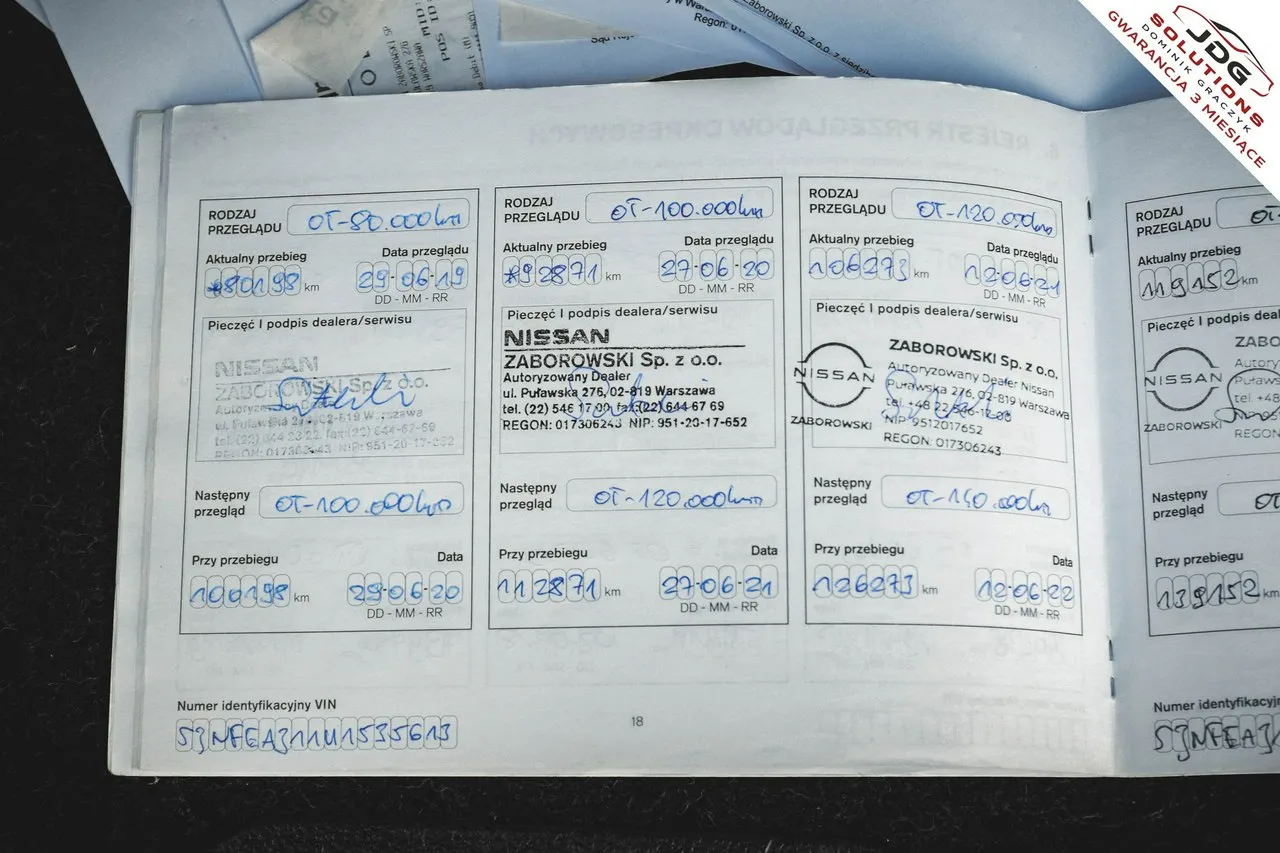 JDG
SOLUTIONS
DOMINIK GRACZYK
GWARANCJA 3 MIESIĄCE
Zaborowski Sp. z o.o. z
Regon:
POS ID
6. REJESTR PRZEGLĄDÓW OKRESOWYCH
RODZAJ PRZEGLĄDU OT-80.000km
Aktualny przebieg Data przeglądu
*80198 km 29-06-19
DD - MM - RR
Pieczęć I podpis dealera/serwisu
NISSAN
ZABOROWSKI Sp. z o.o.
Autoryzowany Dealer
ul. Puławska 276, 02-819 Warszawa
REGON: 017306243 NIP: 951-20-17-652
Następny przegląd OT-100.000km
Przy przebiegu Data
100198 km 29-06-20
DD - MM - RR
RODZAJ PRZEGLĄDU OT-100.000km
Aktualny przebieg Data przeglądu
*92871 km 27-06-20
DD - MM - RR
Pieczęć I podpis dealera/serwisu
NISSAN
ZABOROWSKI Sp. z o.o.
Autoryzowany Dealer
ul. Puławska 276, 02-819 Warszawa
tel. (22) 546 17 00 fax:(22) 644 67 69
REGON: 017306243 NIP: 951-20-17-652
Następny przegląd OT-120.000km
Przy przebiegu Data
112871 km 27-06-21
DD - MM - RR
RODZAJ PRZEGLĄDU OT-120.000km
Aktualny przebieg Data przeglądu
106273 km 12-06-21
DD - MM - RR
Pieczęć I podpis dealera/serwisu
NISSAN
ZABOROWSKI
ZABOROWSKI Sp. z o.o.
Autoryzowany Dealer Nissan
Puławska 276, 02-819 Warszawa
tel. +48 22 546-17-00
NIP: 9512017652
REGON: 017306243
Następny przegląd OT-140.000km
Przy przebiegu Data
126273 km 12-06-22
DD - MM - RR
Numer identyfikacyjny VIN
SJNFEAJ11U1535613
18
RODZAJ PRZEGLĄDU OT-
Aktualny przebieg
119152 km
Pieczęć I podpis deale
NISSAN
ZABOROWSKI
ZABO
Autory
Puławs
tel. +48
REGON
Następny przegląd OT
Przy przebiegu
139152 km
Numer identyfikacyj
SJNFEAJ